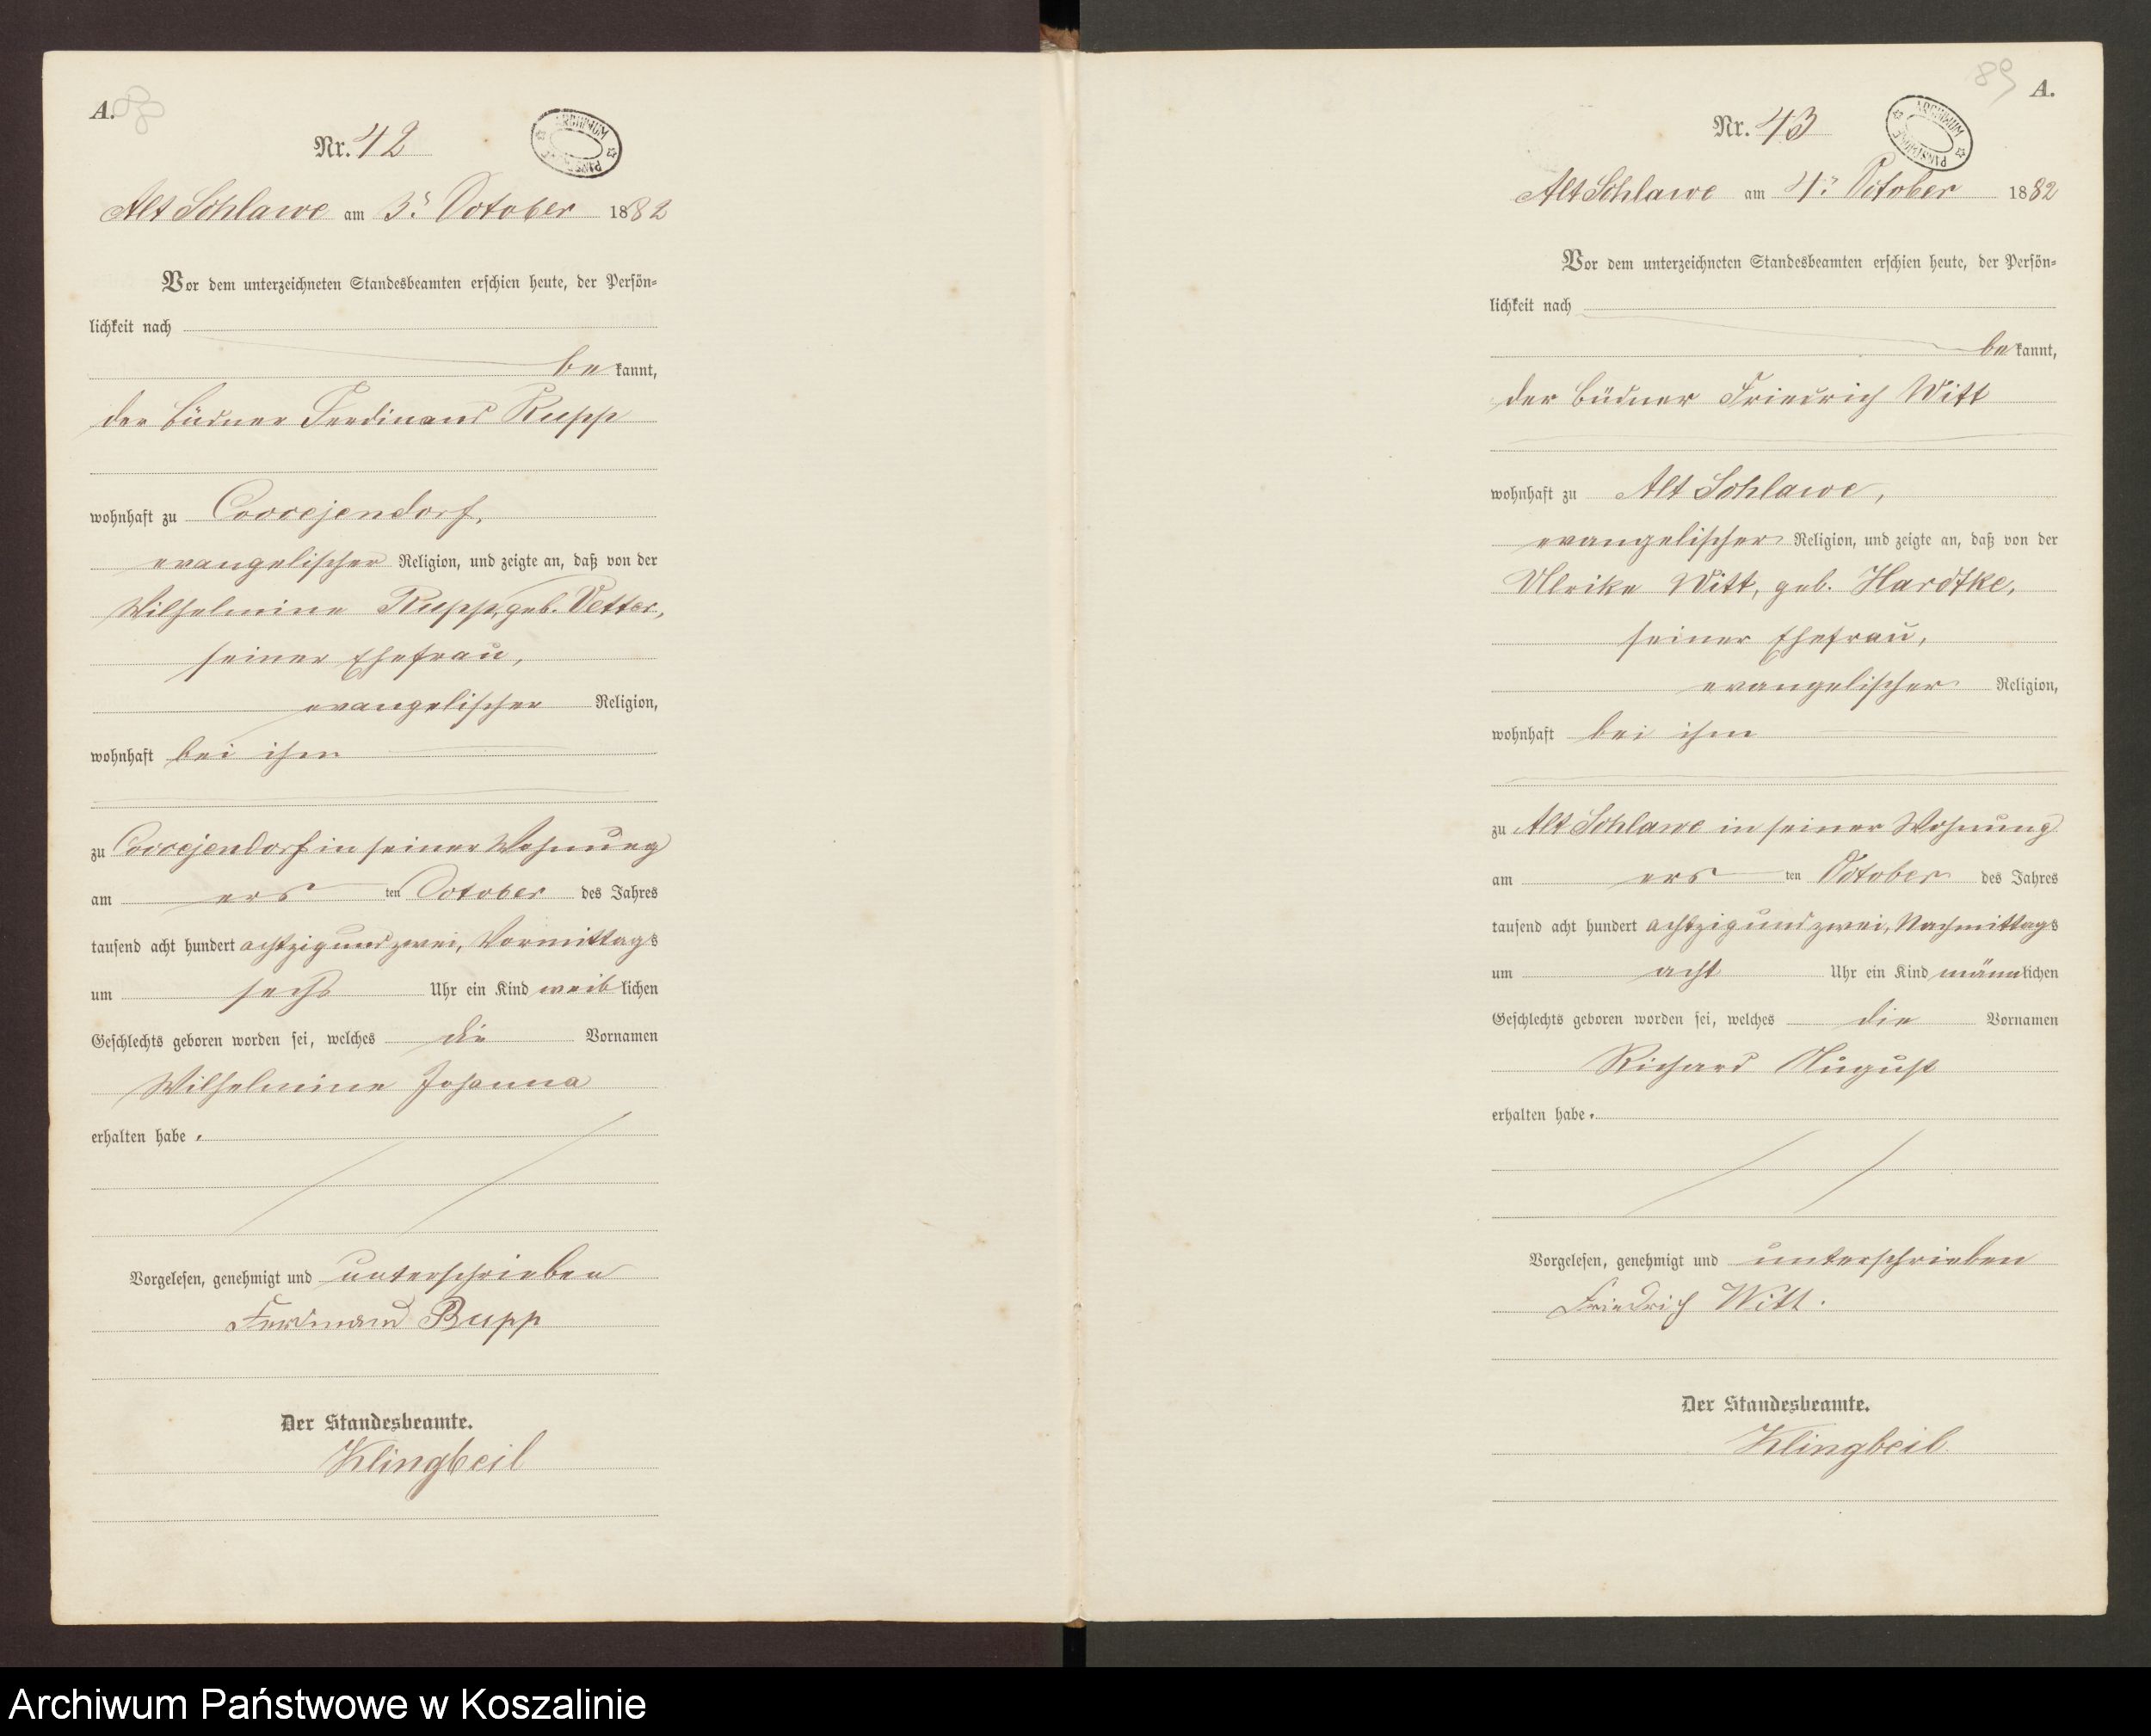 A.
Nr. 42
ARCHIWUM PAŃSTWOWE
Alt Schlawe am 3ˢ October 1882
Vor dem unterzeichneten Standesbeamten erschien heute, der Persön-
lichkeit nach
bekannt,
der Büdner Ferdinand Rupp
wohnhaft zu Coccejendorf,
evangelischer Religion, und zeigte an, daß von der
Wilhelmine Rupp, geb. Vetter,
seiner Ehefrau,
evangelischer Religion,
wohnhaft bei ihm
zu Coccejendorf in seiner Wohnung
am ersten October des Jahres
tausend acht hundert achtzig und zwei, Vormittags
um sechs Uhr ein Kind weiblichen
Geschlechts geboren worden sei, welches die Vornamen
Wilhelmine Johanna
erhalten habe.
Vorgelesen, genehmigt und unterschrieben
Ferdinand Rupp
Der Standesbeamte.
Klingbeil
89
A.
Nr. 43
ARCHIWUM PAŃSTWOWE
Alt Schlawe am 4ˢ October 1882
Vor dem unterzeichneten Standesbeamten erschien heute, der Persön-
lichkeit nach
bekannt,
der Büdner Friedrich Witt
wohnhaft zu Alt Schlawe,
evangelischer Religion, und zeigte an, daß von der
Ulrike Witt, geb. Hardtke,
seiner Ehefrau,
evangelischer Religion,
wohnhaft bei ihm
zu Alt Schlawe in seiner Wohnung
am ersten October des Jahres
tausend acht hundert achtzig und zwei, Nachmittags
um acht Uhr ein Kind männlichen
Geschlechts geboren worden sei, welches die Vornamen
Richard August
erhalten habe.
Vorgelesen, genehmigt und unterschrieben
Friedrich Witt.
Der Standesbeamte.
Klingbeil
Archiwum Państwowe w Koszalinie